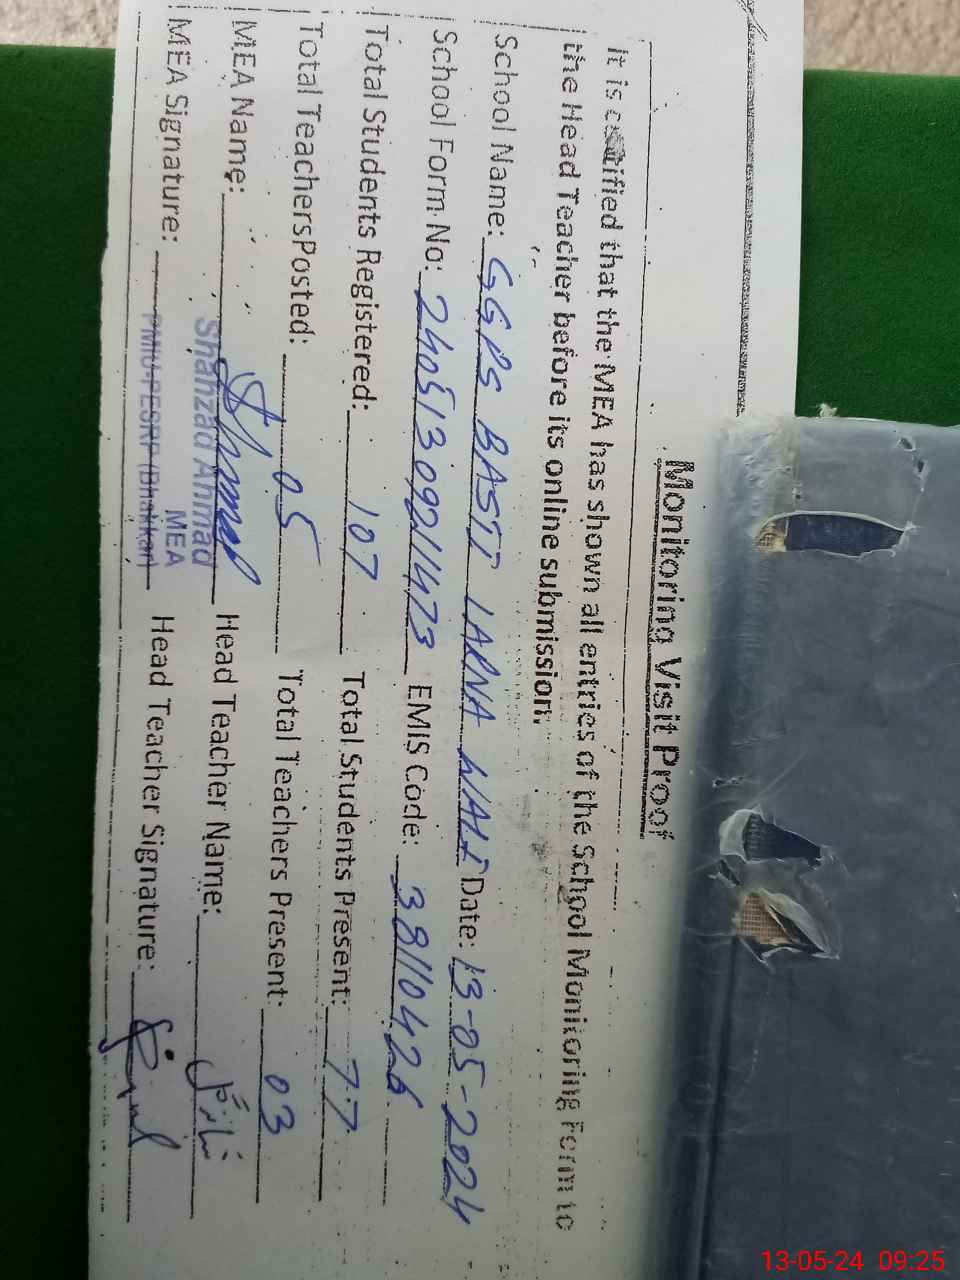 Monitoring Visit Proof
It is certified that the MEA has shown all entries of the School Monitoring Form to
the Head Teacher before its online submission.
School Name: GGPS BASTI LARNA WALI Date: 13-05-2024
School Form No: 24051309211473 EMIS Code: 38110426
Total Students Registered: 107 Total Students Present: 77
Total TeachersPosted: 05 Total Teachers Present: 03
MEA Name: Head Teacher Name:
Shahzad Ahmad
MEA
MEA Signature: Head Teacher Signature:
PMIU-PESRP (Bhakkar)
13-05-24 09:25